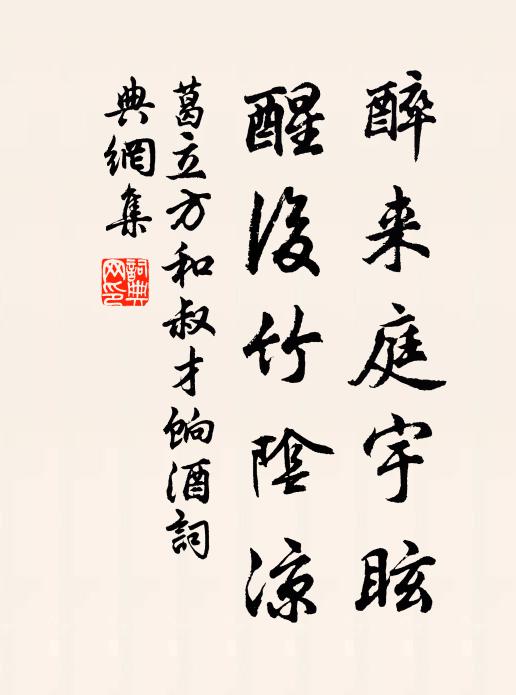 醉来庭宇眩
醒後竹陰凉
葛立方和叔才餉酒詞
典網集
詞典網印